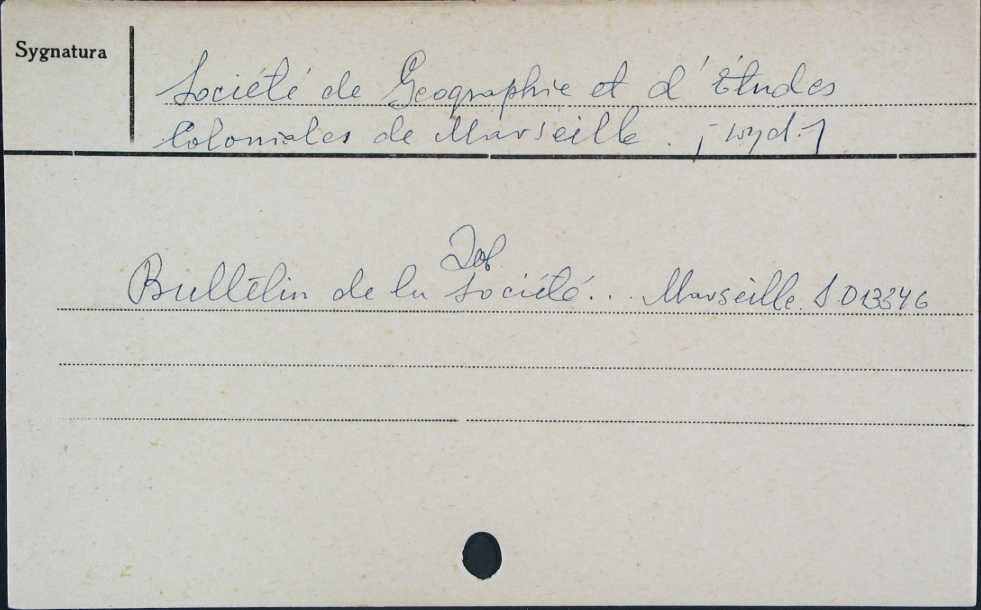 Sygnatura
Société de Geographie et d'Études
Coloniales de Marseille. [wyd.]
Zob.
Bulletin de la Société... Marseille. S 013346